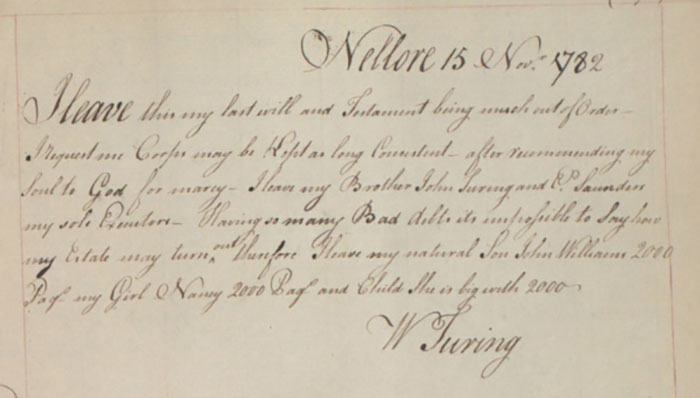 Nellore 15 Novr. 1782
I leave this my last will and Testament being much out of Order –
I Request me Corps may be Kept as long Consistent – after recommending my
Soul to God for marcy – I leave my Brother John Turing and Ed. Saunders
my sole Executors – Having so many Bad debts its impossible to Say how
my Estate may turn out therefore I leave my natural Son John William 2000
Pags. my Girl Nancy 2000 Pags. and Child She is big with 2000
W Turing